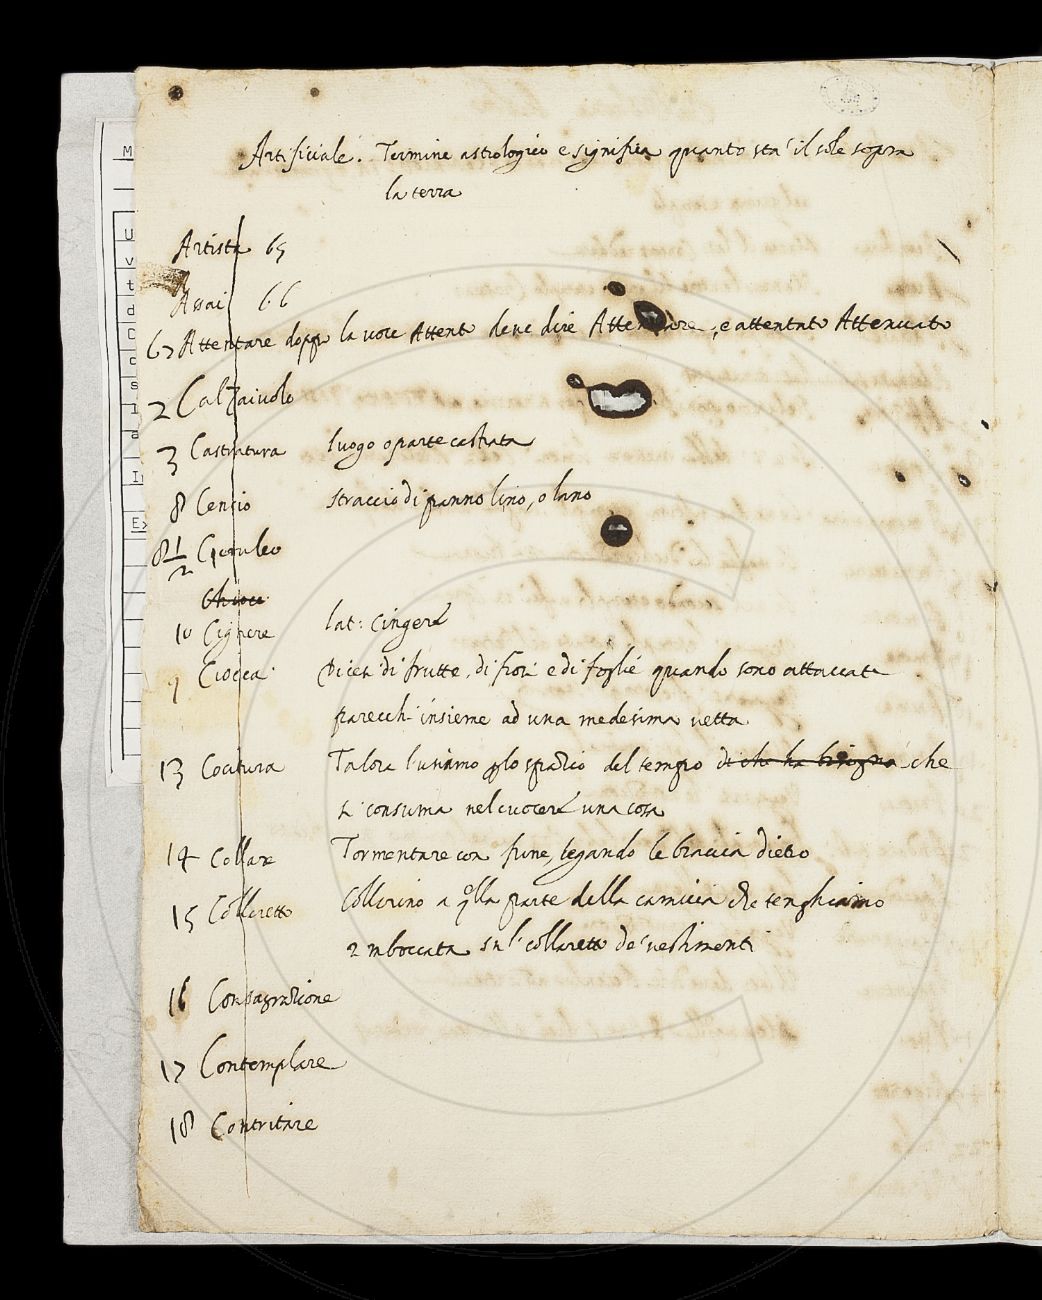 Artificiale. Termine astrologico e significa quanto sta il sole sopra
la terra
Artista 65
Assai 66
67 Attentare dopo la voce Attento deve dire Attentare, e attentato Attenuato
2 Calzaiuolo
3 Castratura luogo o parte castrata
8 Cencio straccio di panno lino, o lano
8 1/2 Ceruleo
10 Cignere lat: cingere
9 Ciocca Dicesi di frutte, di fiori e di foglie quando sono attaccate
parecchi insieme ad una medesima vetta
13 Cocitura Talora l'usiamo p lo spazio del tempo di che ha bisogno che
si consuma nel cuocere una cosa
14 Collare Tormentare con fune, legando le braccia dietro
15 Colleretto Collarino a qlla parte della camicia che tenghiamo
imboccata sul collaretto de vestimenti
16 Consagrazione
17 Contemplare
18 Contritare
M
U
v
t
d